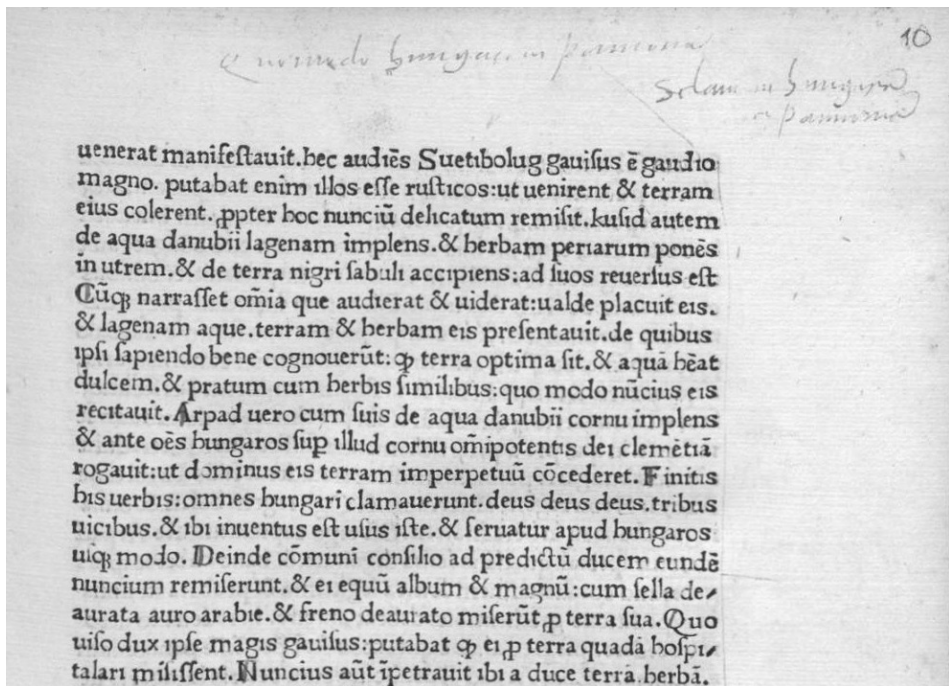 10
Quomodo hungari in pannonia
in hungaria
pannonia
uenerat manifestauit.hec audiẽs Suetibolug gauisus ẽ gaudio
magno. putabat enim illos eſſe ruſticos:ut uenirent & terram
eius colerent.ꝓpter hoc nunciũ delicatum remiſit.kuſid autem
de aqua danubii lagenam implens.& herbam periarum ponẽs
in utrem.& de terra nigri ſabuli accipiens:ad ſuos reuerſus eſt
Cũqꝫ narraſſet om̃ia que audierat & uiderat:ualde placuit eis.
& lagenam aque.terram & herbam eis preſentauit.de quibus
ipſi ſapiendo bene cognouerũt:ꝙ terra optima ſit.& aquã hẽat
dulcem.& pratum cum herbis ſimilibus:quo modo nũcius eis
recitauit.Arpad uero cum ſuis de aqua danubii cornu implens
& ante oẽs hungaros ſuꝑ illud cornu om̃ipotentis dei clemẽtiã
rogauit:ut dominus eis terram imperpetuũ cõcederet.Finitis
his uerbis:omnes hungari clamauerunt.deus deus deus.tribus
uicibus.& ibi inuentus eſt uſus iſte.& ſeruatur apud hungaros
uſqꝫ modo. Deinde cõmuni conſilio ad predictũ ducem eundẽ
nuncium remiſerunt.& ei equũ album & magnũ:cum ſella de⸗
aurata auro arabie.& freno deaurato miſerũt ꝓ terra ſua.Quo
uiſo dux ipſe magis gauiſus:putabat ꝙ ei ꝓ terra quadã hoſpi⸗
talari miſiſſent.Nuncius aũt ĩpetrauit ibi a duce terrã.herbã.